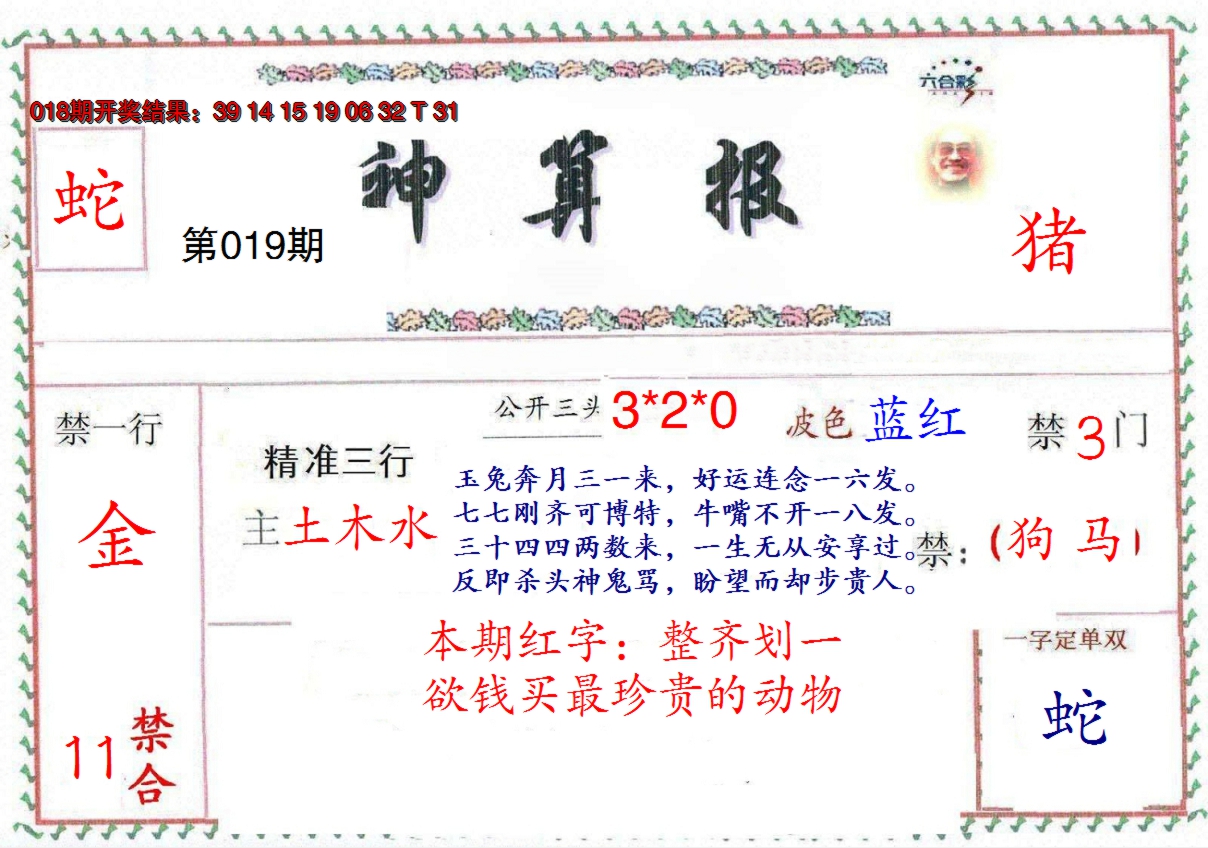 六合彩
018期开奖结果：39 14 15 19 06 32 T 31
神算报
蛇
第019期
猪
禁一行
金
11
禁合
精准三行
主土木水
公开三头 3*2*0
波色 蓝红
禁3门
玉兔奔月三一来，好运连念一六发。
七七刚齐可博特，牛嘴不开一八发。
三十四四两数来，一生无从安享过。
反即杀头神鬼骂，盼望而却步贵人。
禁：（狗 马）
本期红字：整齐划一
欲钱买最珍贵的动物
一字定单双
蛇